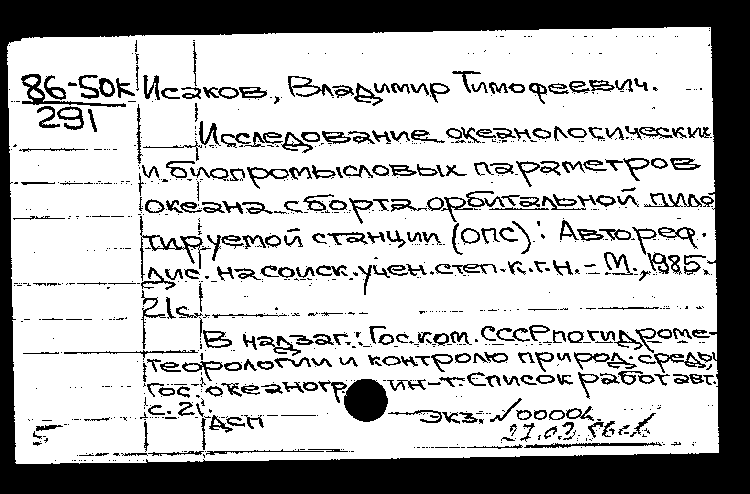 86-50к Исаков, Владимир Тимофеевич.
291
Исследование океанологических
и биопромысловых параметров
океана с борта орбитальной пило
тируемой станции (ОПС): Автореф.
дис. на соиск. учен. степ. к.г.н. - М., 1985.-
21с.
В надзаг.: Гос. ком. СССР по гидроме-
теорологии и контролю природ. среды
Гос. океаногр. ин-т. Список работ авт.
с. 21
ДСП экз. N00002
5 27.03.86